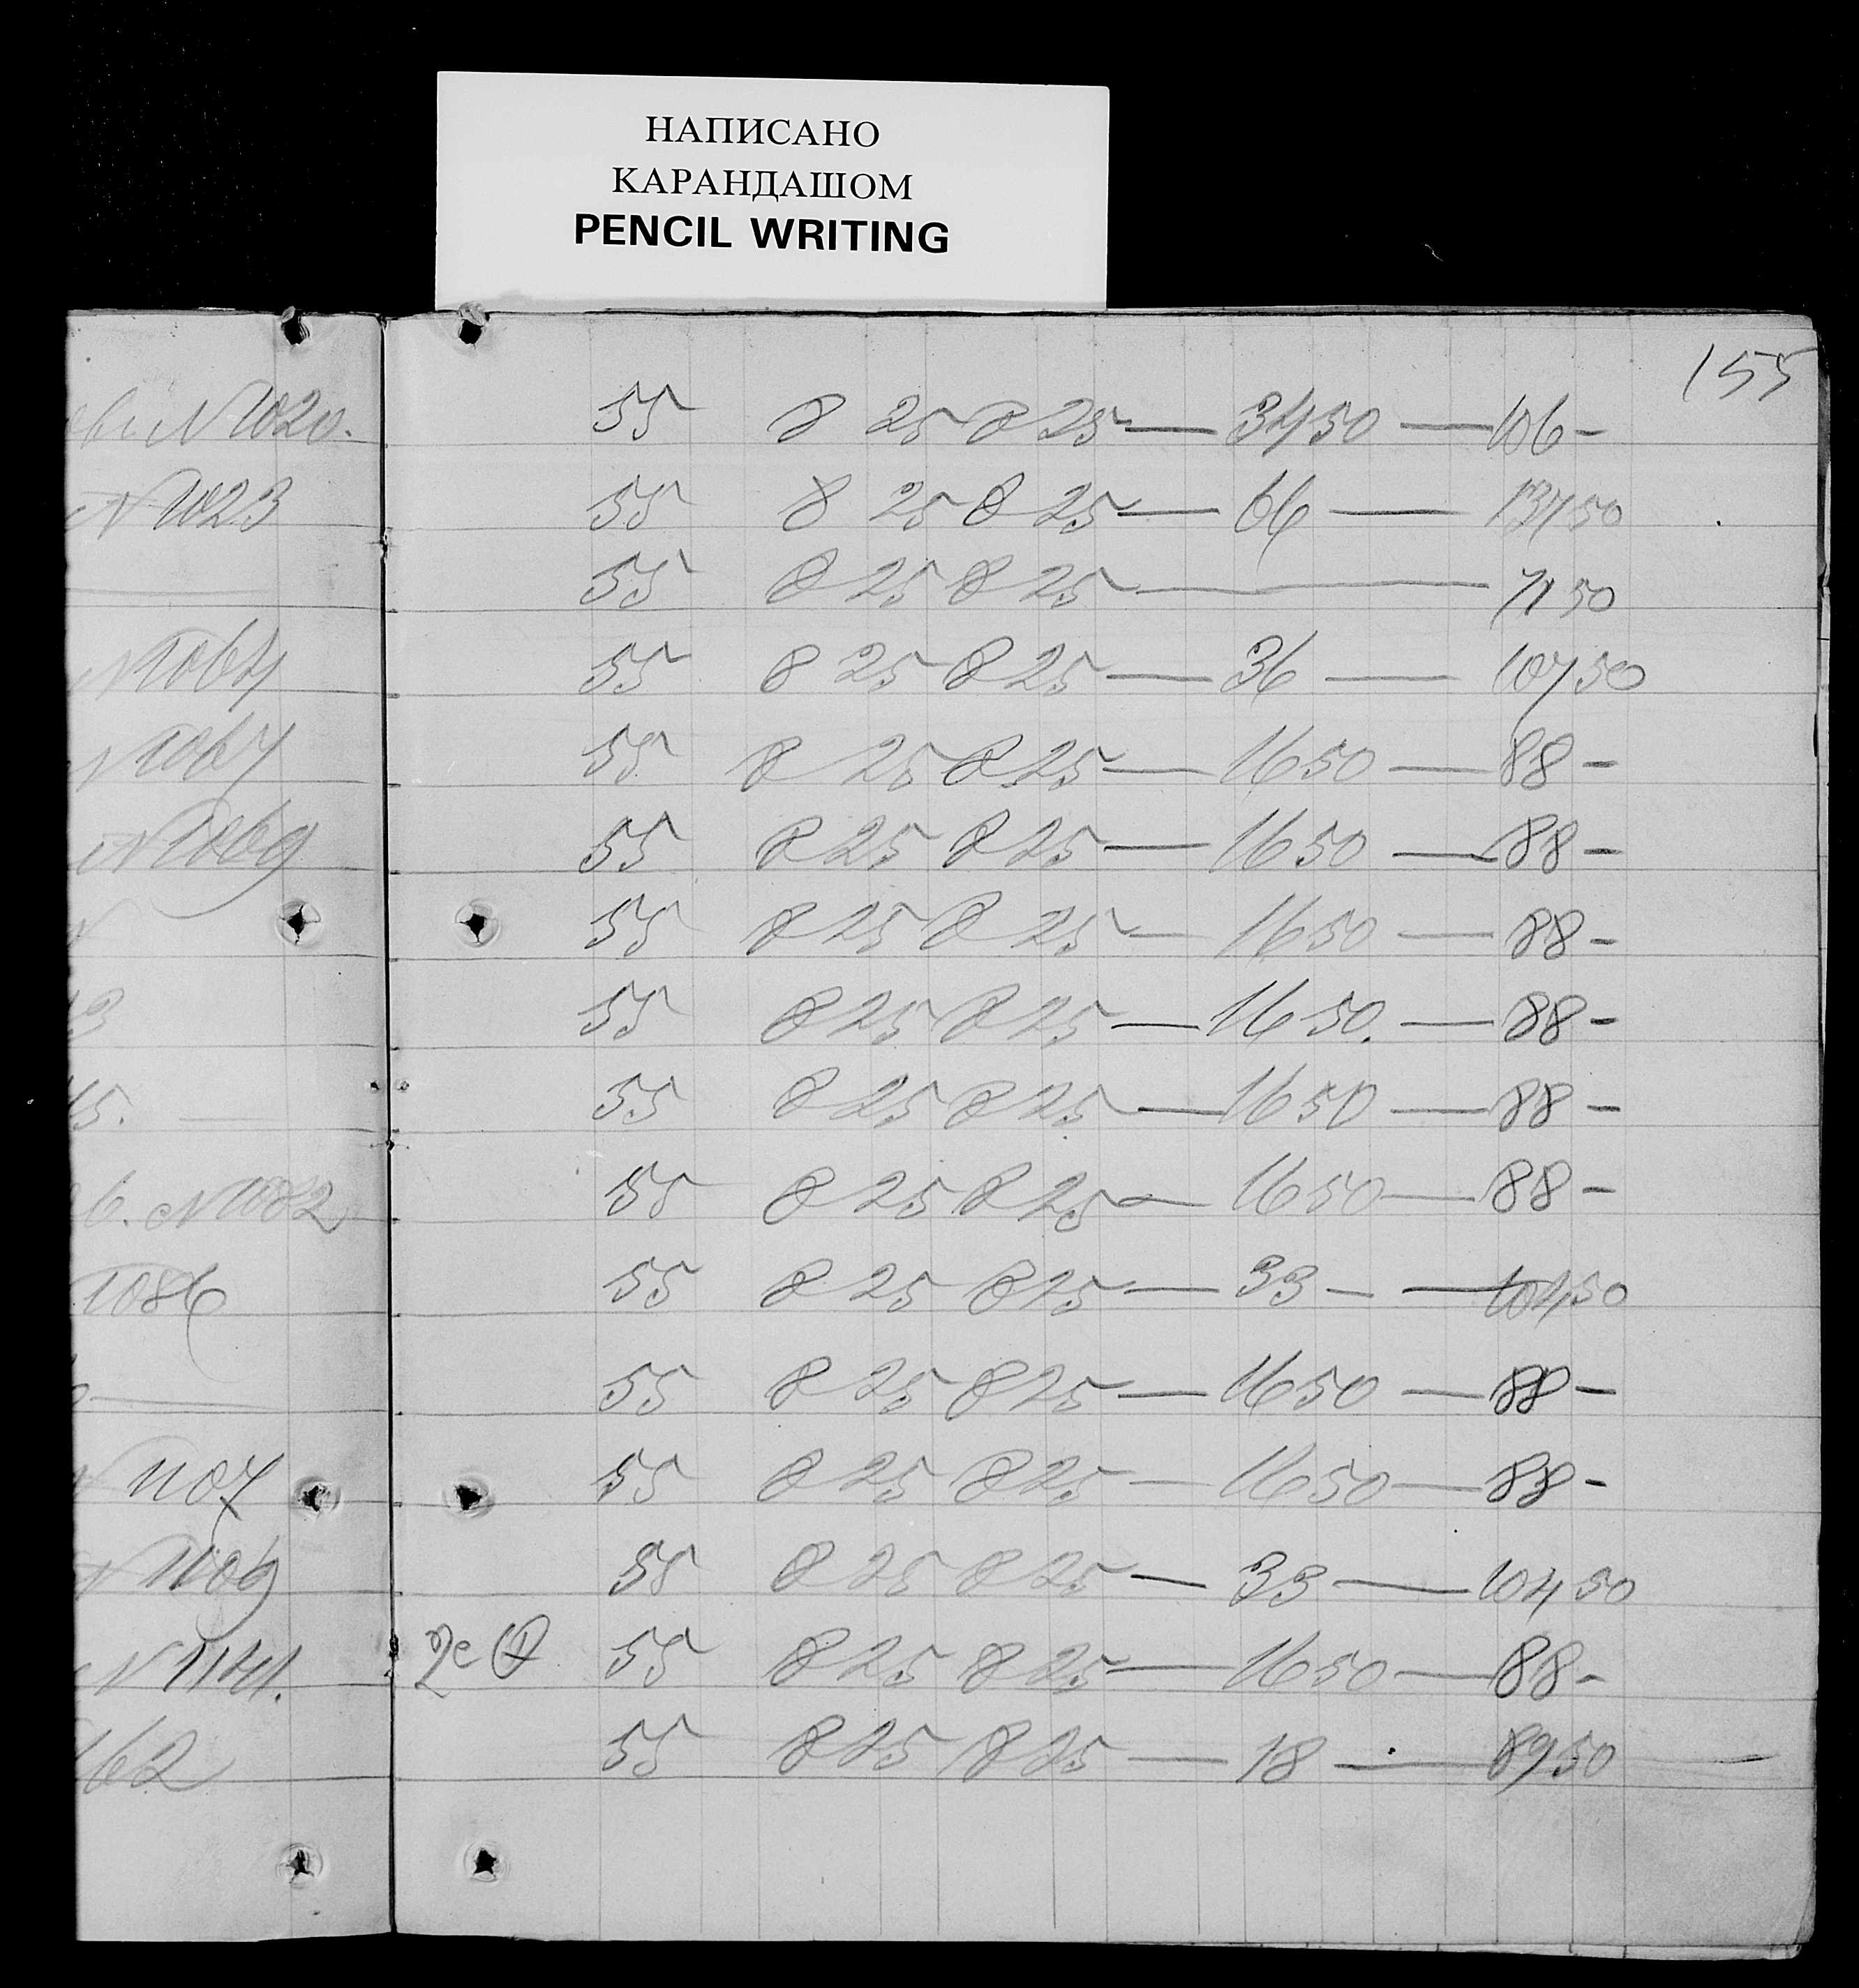 НАПИСАНО
КАРАНДАШОМ
PENCIL WRITING
155
N 1020. 55 8 25 8 25 — 34 50 — 106 -
N 1023 55 8 25 8 25 — 66 — 137 50
55 8 25 8 25 — 71 50
N 1064 55 8 25 8 25 — 36 — 107 50
N 1067 55 8 25 8 25 — 16 50 — 88 -
N 1069 55 8 25 8 25 — 16 50 — 88 -
55 8 25 8 25 — 16 50 — 88 -
3 55 8 25 8 25 — 16 50. — 88 -
5. — 55 8 25 8 25 — 16 50 — 88 -
в. N 1082 55 8 25 8 25 — 16 50 — 88 -
1086 55 8 25 8 25 — 33 — 104 50
55 8 25 8 25 — 16 50 — 88 -
N 1107 55 8 25 8 25 — 16 50 — 88 -
N 1109 55 8 25 8 25 — 33 — 104 50
N 1141. 55 8 25 8 25 — 16 50 — 88 -
162 55 8 25 8 25 — 18 — 89 50 —